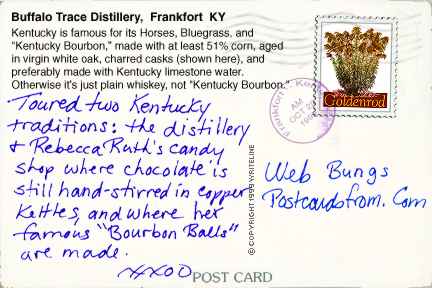 Buffalo Trace Distillery, Frankfort KY
Kentucky is famous for its Horses, Bluegrass, and
"Kentucky Bourbon," made with at least 51% corn, aged
in virgin white oak, charred casks (shown here), and
preferably made with Kentucky limestone water.
Otherwise it's just plain whiskey, not "Kentucky Bourbon."
Toured two Kentucky
traditions: the distillery
& Rebecca Ruth's candy
shop where chocolate is
still hand-stirred in copper
kettles, and where her
famous "Bourbon Balls"
are made.
XXOO
POST CARD
© COPYRIGHT 1999 WRITELINE
Goldenrod
Frankfort Kent
AM
OCT
Web Bungs
Postcardsfrom.Com